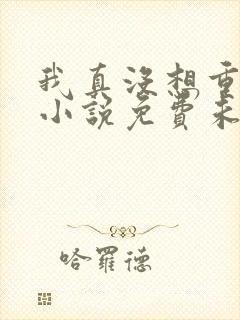 我真沒想重
小說免費
哈羅德